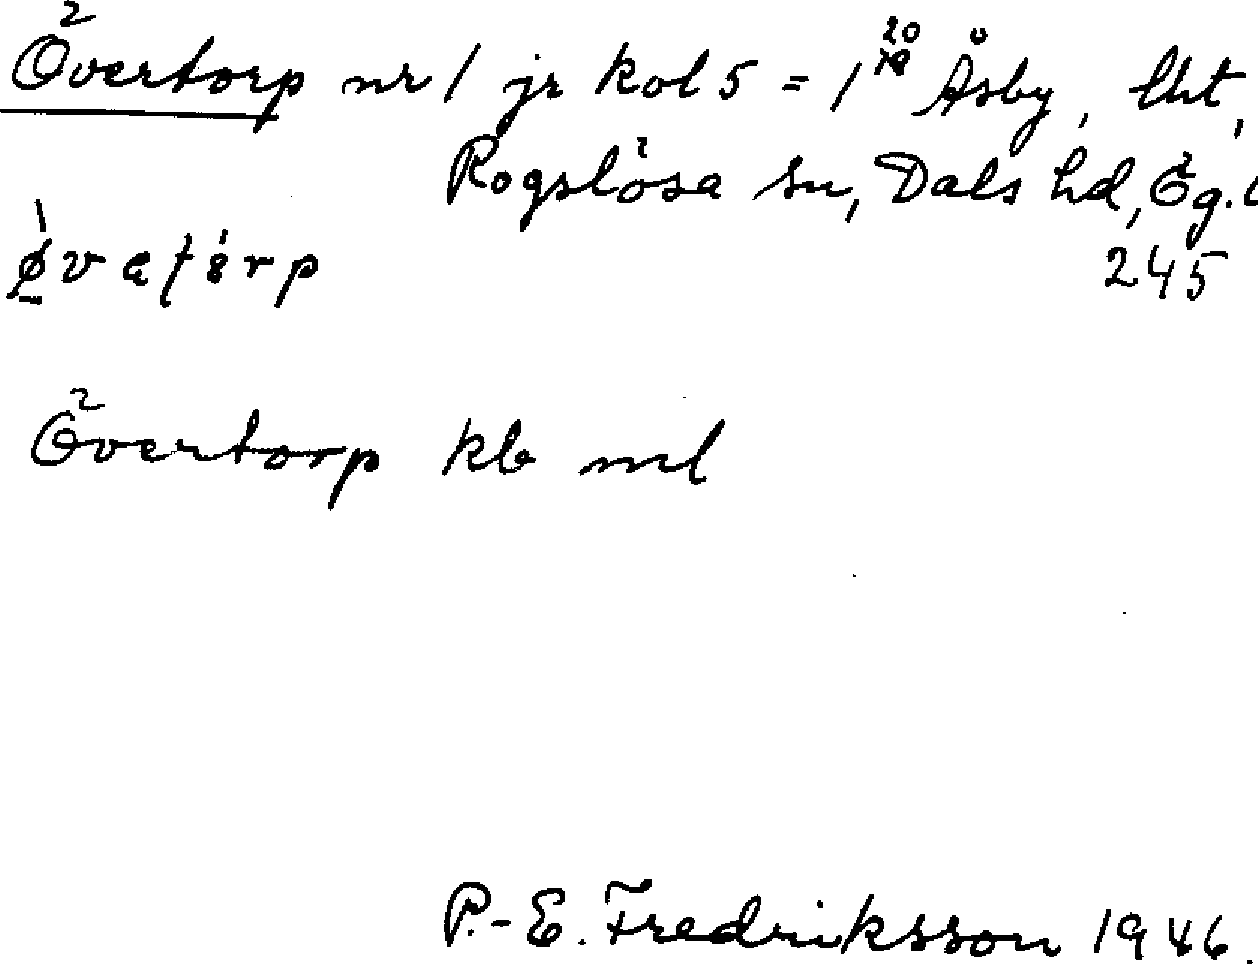 Övertorp nr 1 jr kol 5 = 1²⁰ Åsby, lht,
Rogslösa sn, Dals hd, Ög.l
245
Övertorp kb ml
P.-E. Fredriksson 1946.